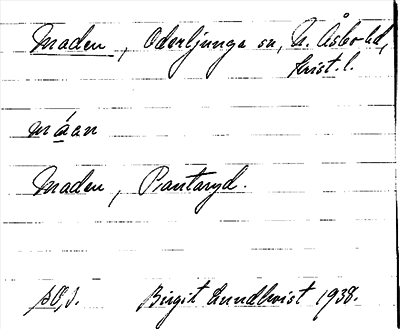 Maden, Oderljunga sn, N. Åsbo hd,
Krist. l.
måan
Maden, Pantaryd.
Birgit Lundkvist 1938.